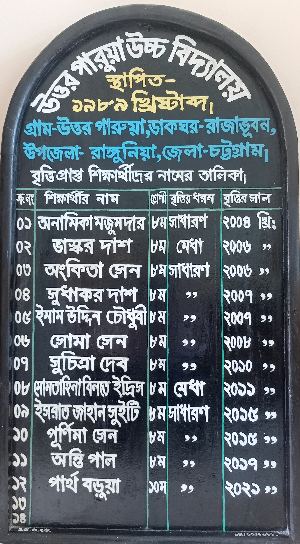 উত্তর পারুয়া উচ্চ বিদ্যালয়
স্থাপিত-
১৯৮৯ খ্রিস্টাব্দ।
গ্রাম-উত্তর পারুয়া, ডাকঘর-রাজাভুবন,
উপজেলা- রাঙ্গুনিয়া, জেলা-চট্টগ্রাম।
বৃত্তি প্রাপ্ত শিক্ষার্থীদের নামের তালিকা;
ক্র.নং শিক্ষার্থীর নাম শ্রেণী বৃত্তির ধরন বৃত্তির সাল
০১ অনামিকা মজুমদার ৮ম সাধারণ ২০০৪ খ্রিঃ
০২ ভাস্কর দাশ ৮ম মেধা ২০০৬ ,,
০৩ অংকিতা সেন ৮ম সাধারণ ২০০৬ ,,
০৪ সুধাকর দাশ ৮ম ,, ২০০৭ ,,
০৫ ইমাম উদ্দিন চৌধুরী ৮ম ,, ২০০৭ ,,
০৬ সোমা সেন ৮ম ,, ২০০৮ ,,
০৭ সুচিত্রা দেব ৮ম ,, ২০১০ ,,
০৮ বিনতে ইদ্রিস ৮ম মেধা ২০১১ ,,
০৯ ইসরাত জাহান সুইটি ৮ম সাধারণ ২০১৫ ,,
১০ পূর্ণিমা সেন ৮ম ,, ২০১৫ ,,
১১ অন্তি পাল ৮ম ,, ২০১৭ ,,
১২ পার্থ বড়ুয়া ১০ম ,, ২০২১ ,,
১৩
১৪